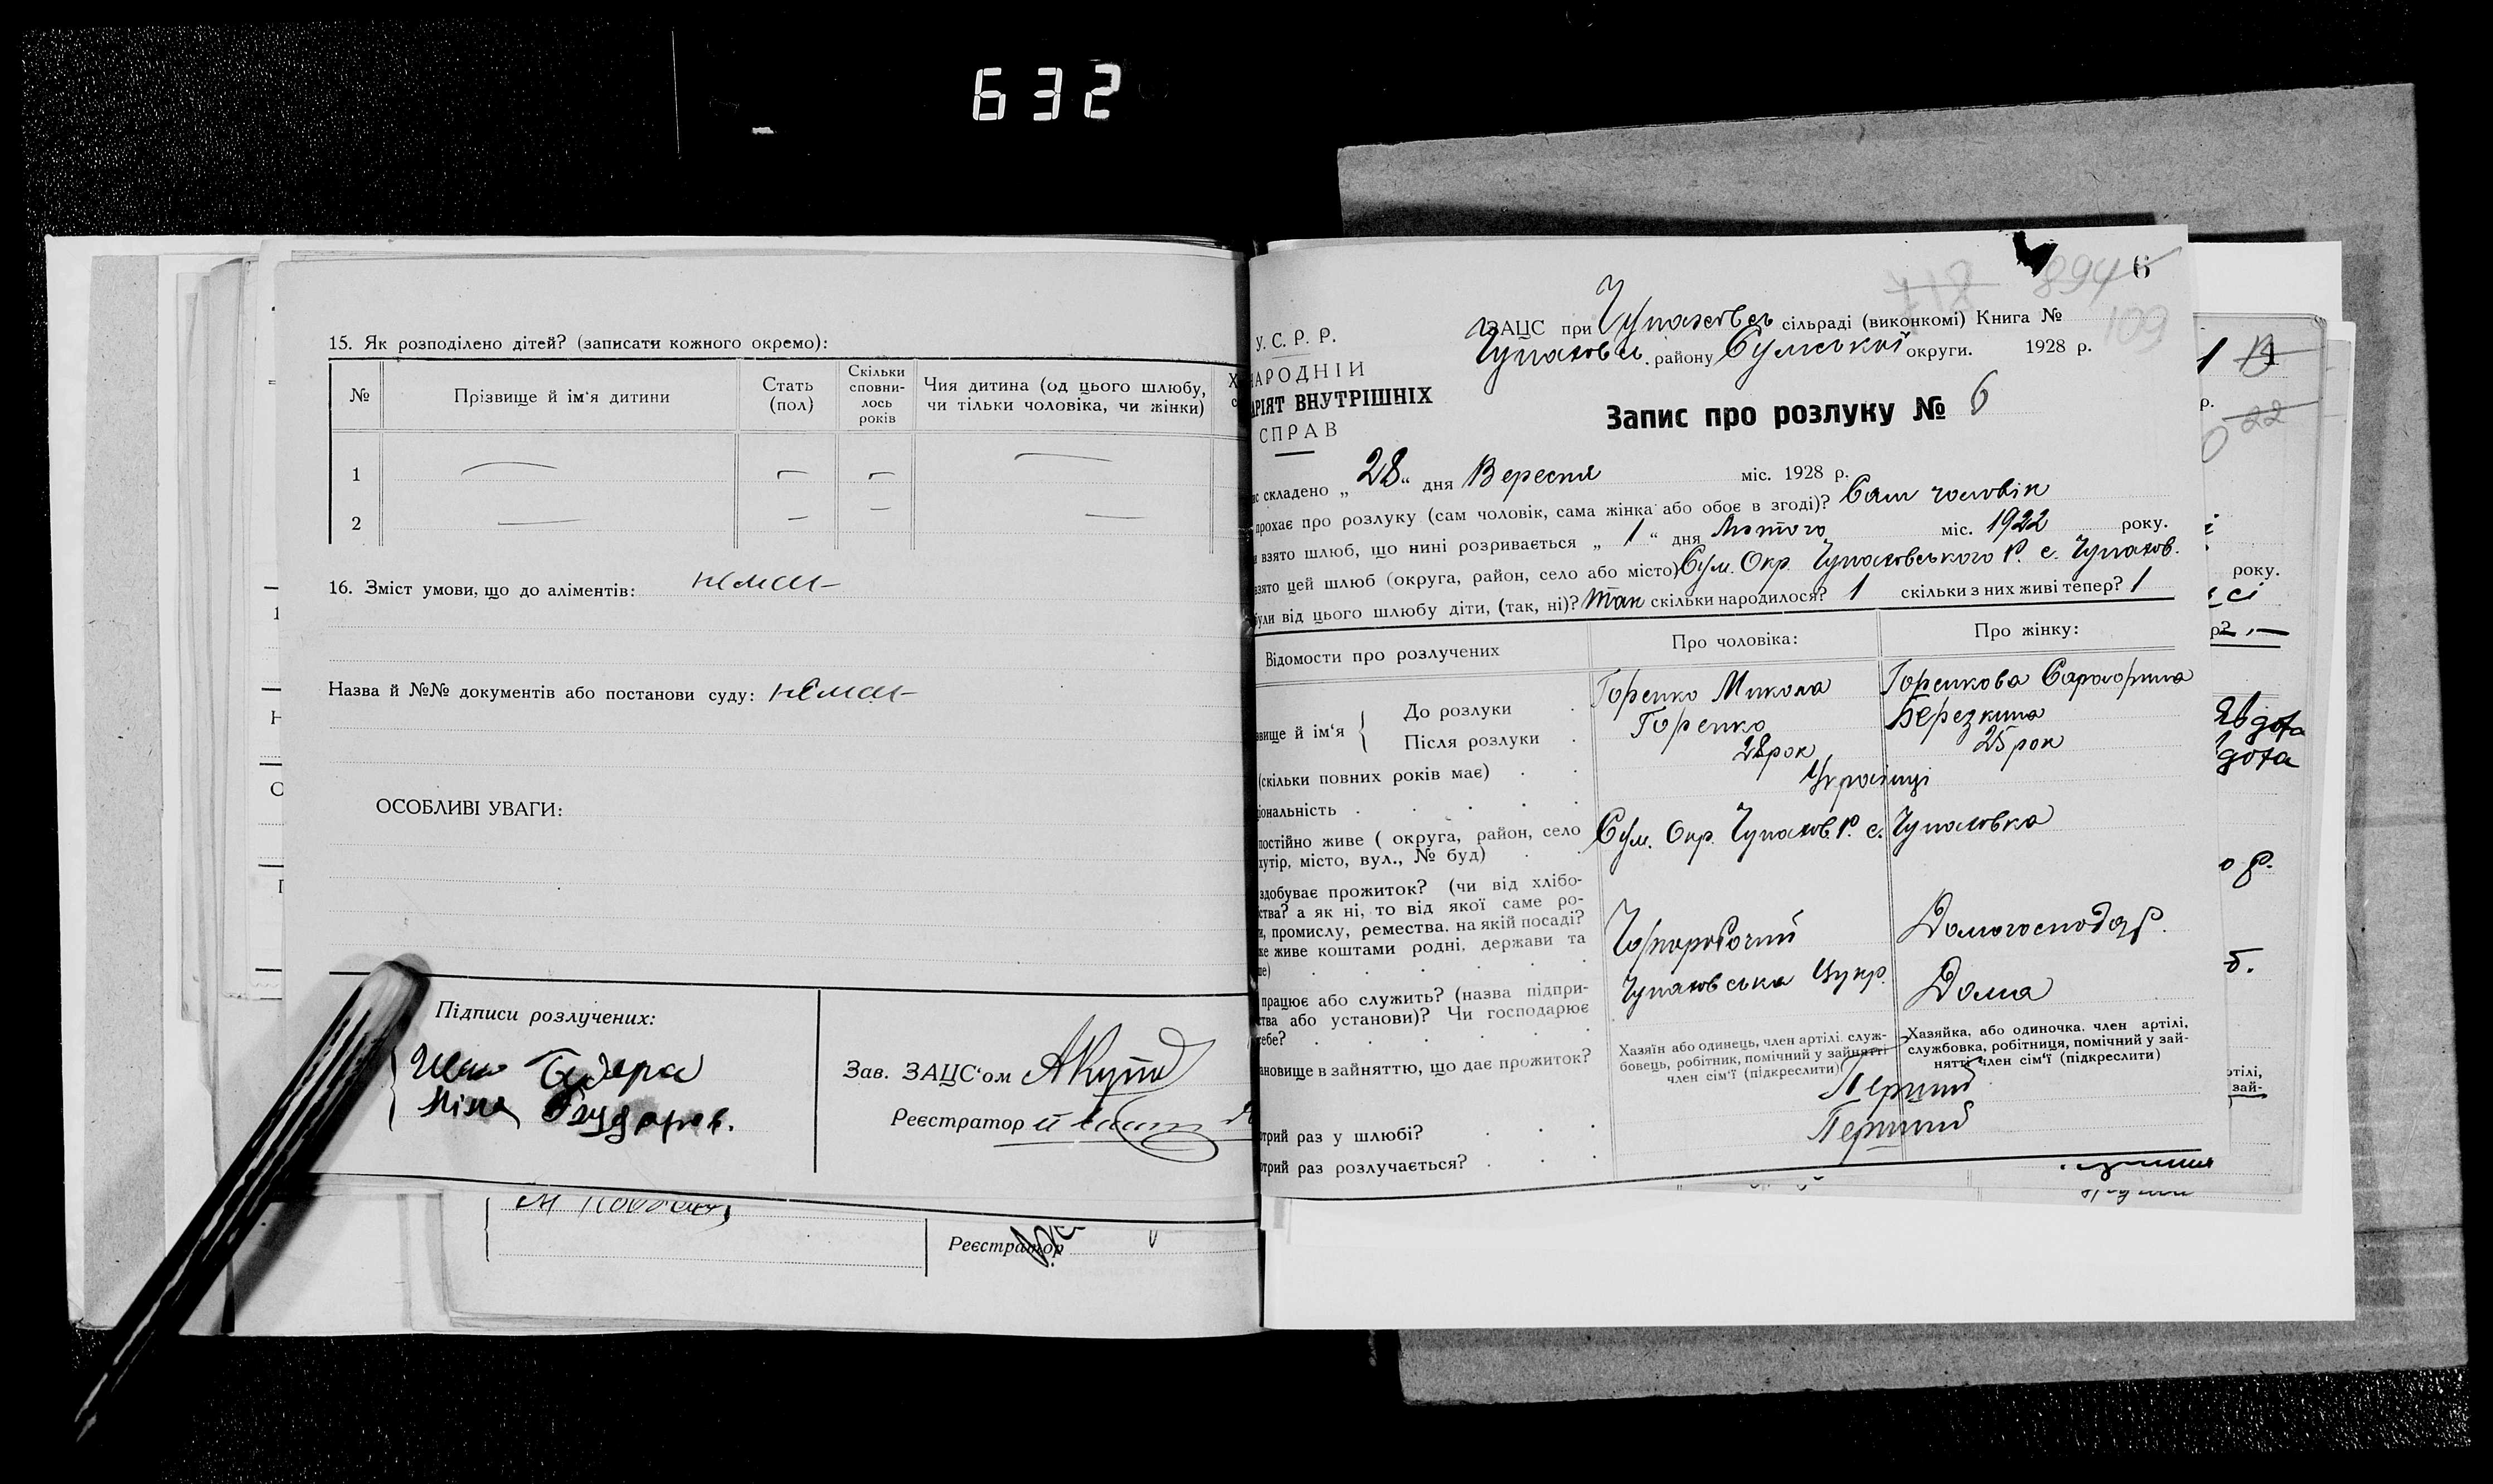 632
15. Як розподілено дітей? (записати кожного окремо):
№ Прізвище й ім'я дитини Стать (пол) Скільки сповнилось років Чия дитина (од цього шлюбу, чи тільки чоловіка, чи жінки)
1 — — — —
2 — — — —
16. Зміст умови, що до аліментів: немає
Назва й №№ документів або постанови суду: немає
ОСОБЛИВІ УВАГИ:
Підписи розлучених:
Зав. ЗАЦС'ом
Реєстратор
Реєстратор
6
894
718
109
У. С. Р. Р.
НАРОДНІЙ
РІЯТ ВНУТРІШНІХ
СПРАВ
ЗАЦС при Чупахівсь сільраді (виконкомі) Книга №
Чупахівсь. району Сумської округи. 1928 р.
Запис про розлуку № 6
складено „ 28 “ дня Вересня міс. 1928 р.
прохає про розлуку (сам чоловік, сама жінка або обоє в згоді)? Сам чоловік
взято шлюб, що нині розривається „ 1 “ дня Лютого міс. 1922 року.
взято цей шлюб (округа, район, село або місто) Сум. Окр. Чупаховського Р. с. Чупахов.
були від цього шлюбу діти, (так, ні)? Так скільки народилося? 1 скільки з них живі тепер? 1
Відомости про розлучених Про чоловіка: Про жінку:
звище й ім'я { До розлуки . Горенко Микола Горенкова
Після розлуки . Горенко Березкина
(скільки повних років має) . . 28 рок 25 рок
ціональність . . . . . Українці
постійно живе ( округа, район, село
хутір, місто, вул., № буд) . . Сум. Окр. Чупахов. Р. с. Чупаховка
здобуває прожиток? (чи від хлібо-
ства? а як ні, то від якої саме ро-
и, промислу, ремества. на якій посаді?
же живе коштами родні, держави та
ше) . . . . . Чорноробочий Домогосподар.
працює або служить? (назва підпри-
ства або установи)? Чи господарює
себе? . . . . . Чупаховська Цукр. Дома
ановище в зайняттю, що дає прожиток?
Хазяїн або одинець, член артілі, служ-
бовець, робітник, помічний у зайнятті
член сім'ї (підкреслити)
Хазяйка, або одиночка, член артілі,
службовка, робітниця, помічний у зай-
нятті член сім'ї (підкреслити)
трий раз у шлюбі? . . . Перший
трий раз розлучається? . . . Перший
р.
22
року.